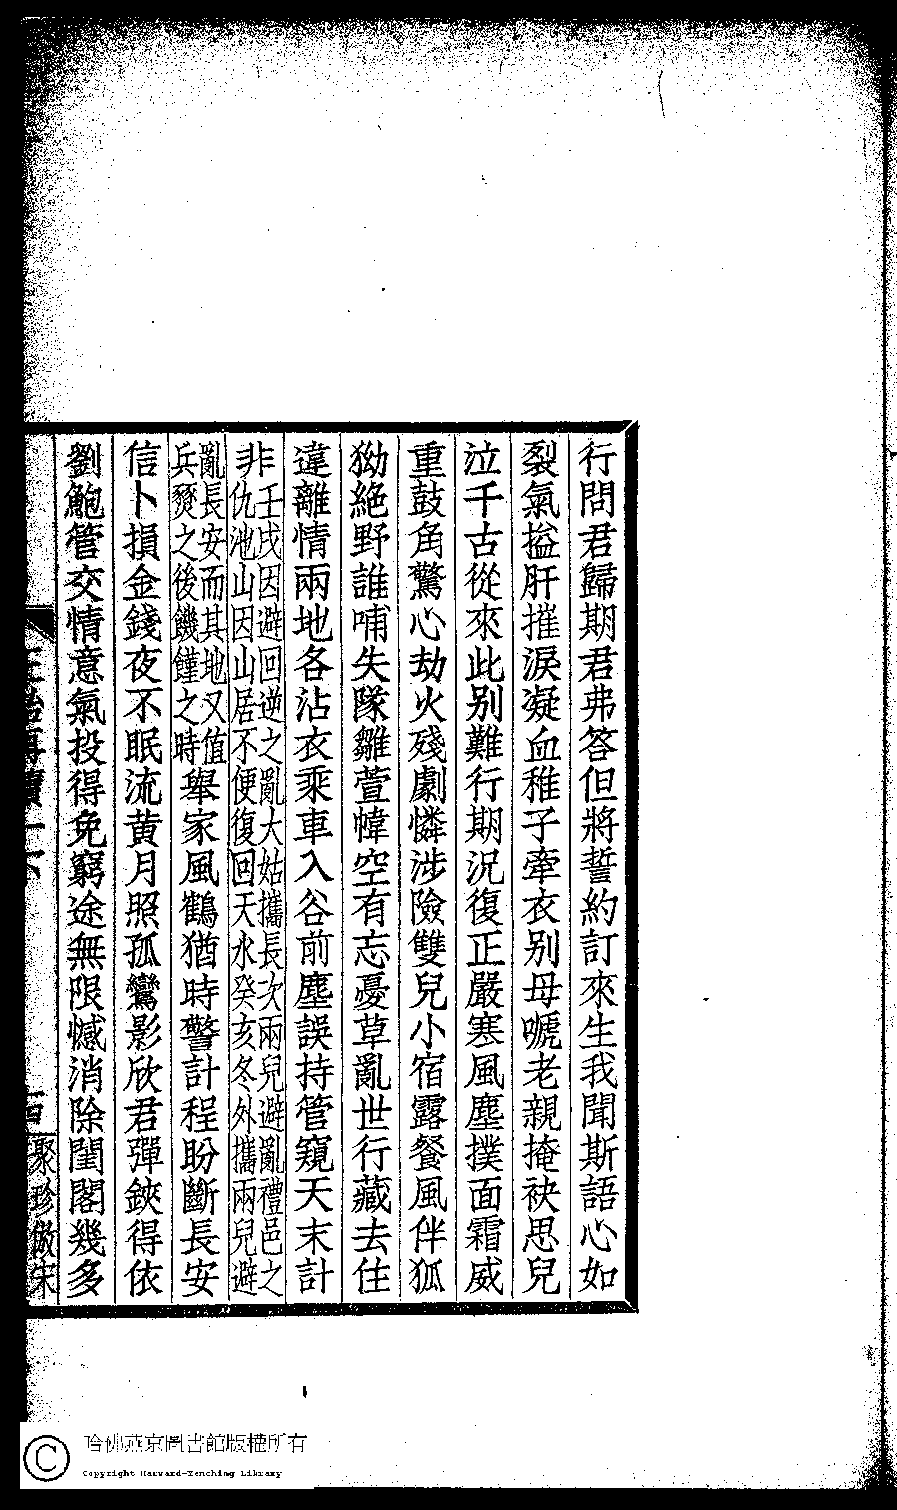 行問君歸期君弗答但將誓約訂來生我聞斯語心如
裂氣搤肝摧淚凝血稚子牽衣别母嗁老親掩袂思兒
泣千古從來此别難行期況復正嚴寒風塵撲面霜威
重鼓角驚心劫火殘劇憐涉險雙兒小宿露餐風伴狐
狖絶野誰哺失隊雛萱幃空有忘憂草亂世行藏去住
違離情兩地各沾衣乘車入谷前塵誤持管窺天末計
非壬戌因避回逆之亂大姑攜長次兩兒避亂禮邑之
仇池山因山居不便復回天水癸亥冬外攜兩兒避
亂長安而其地又值
兵燹之後饑饉之時舉家風鶴猶時警計程盼斷長安
信卜損金錢夜不眠流黄月照孤鸞影欣君彈鋏得依
劉鮑管交情意氣投得免窮途無限憾消除閨閣幾多
聚珍倣宋
哈佛燕京圖書館版權所有
Copyright Harvard-Yenching Library